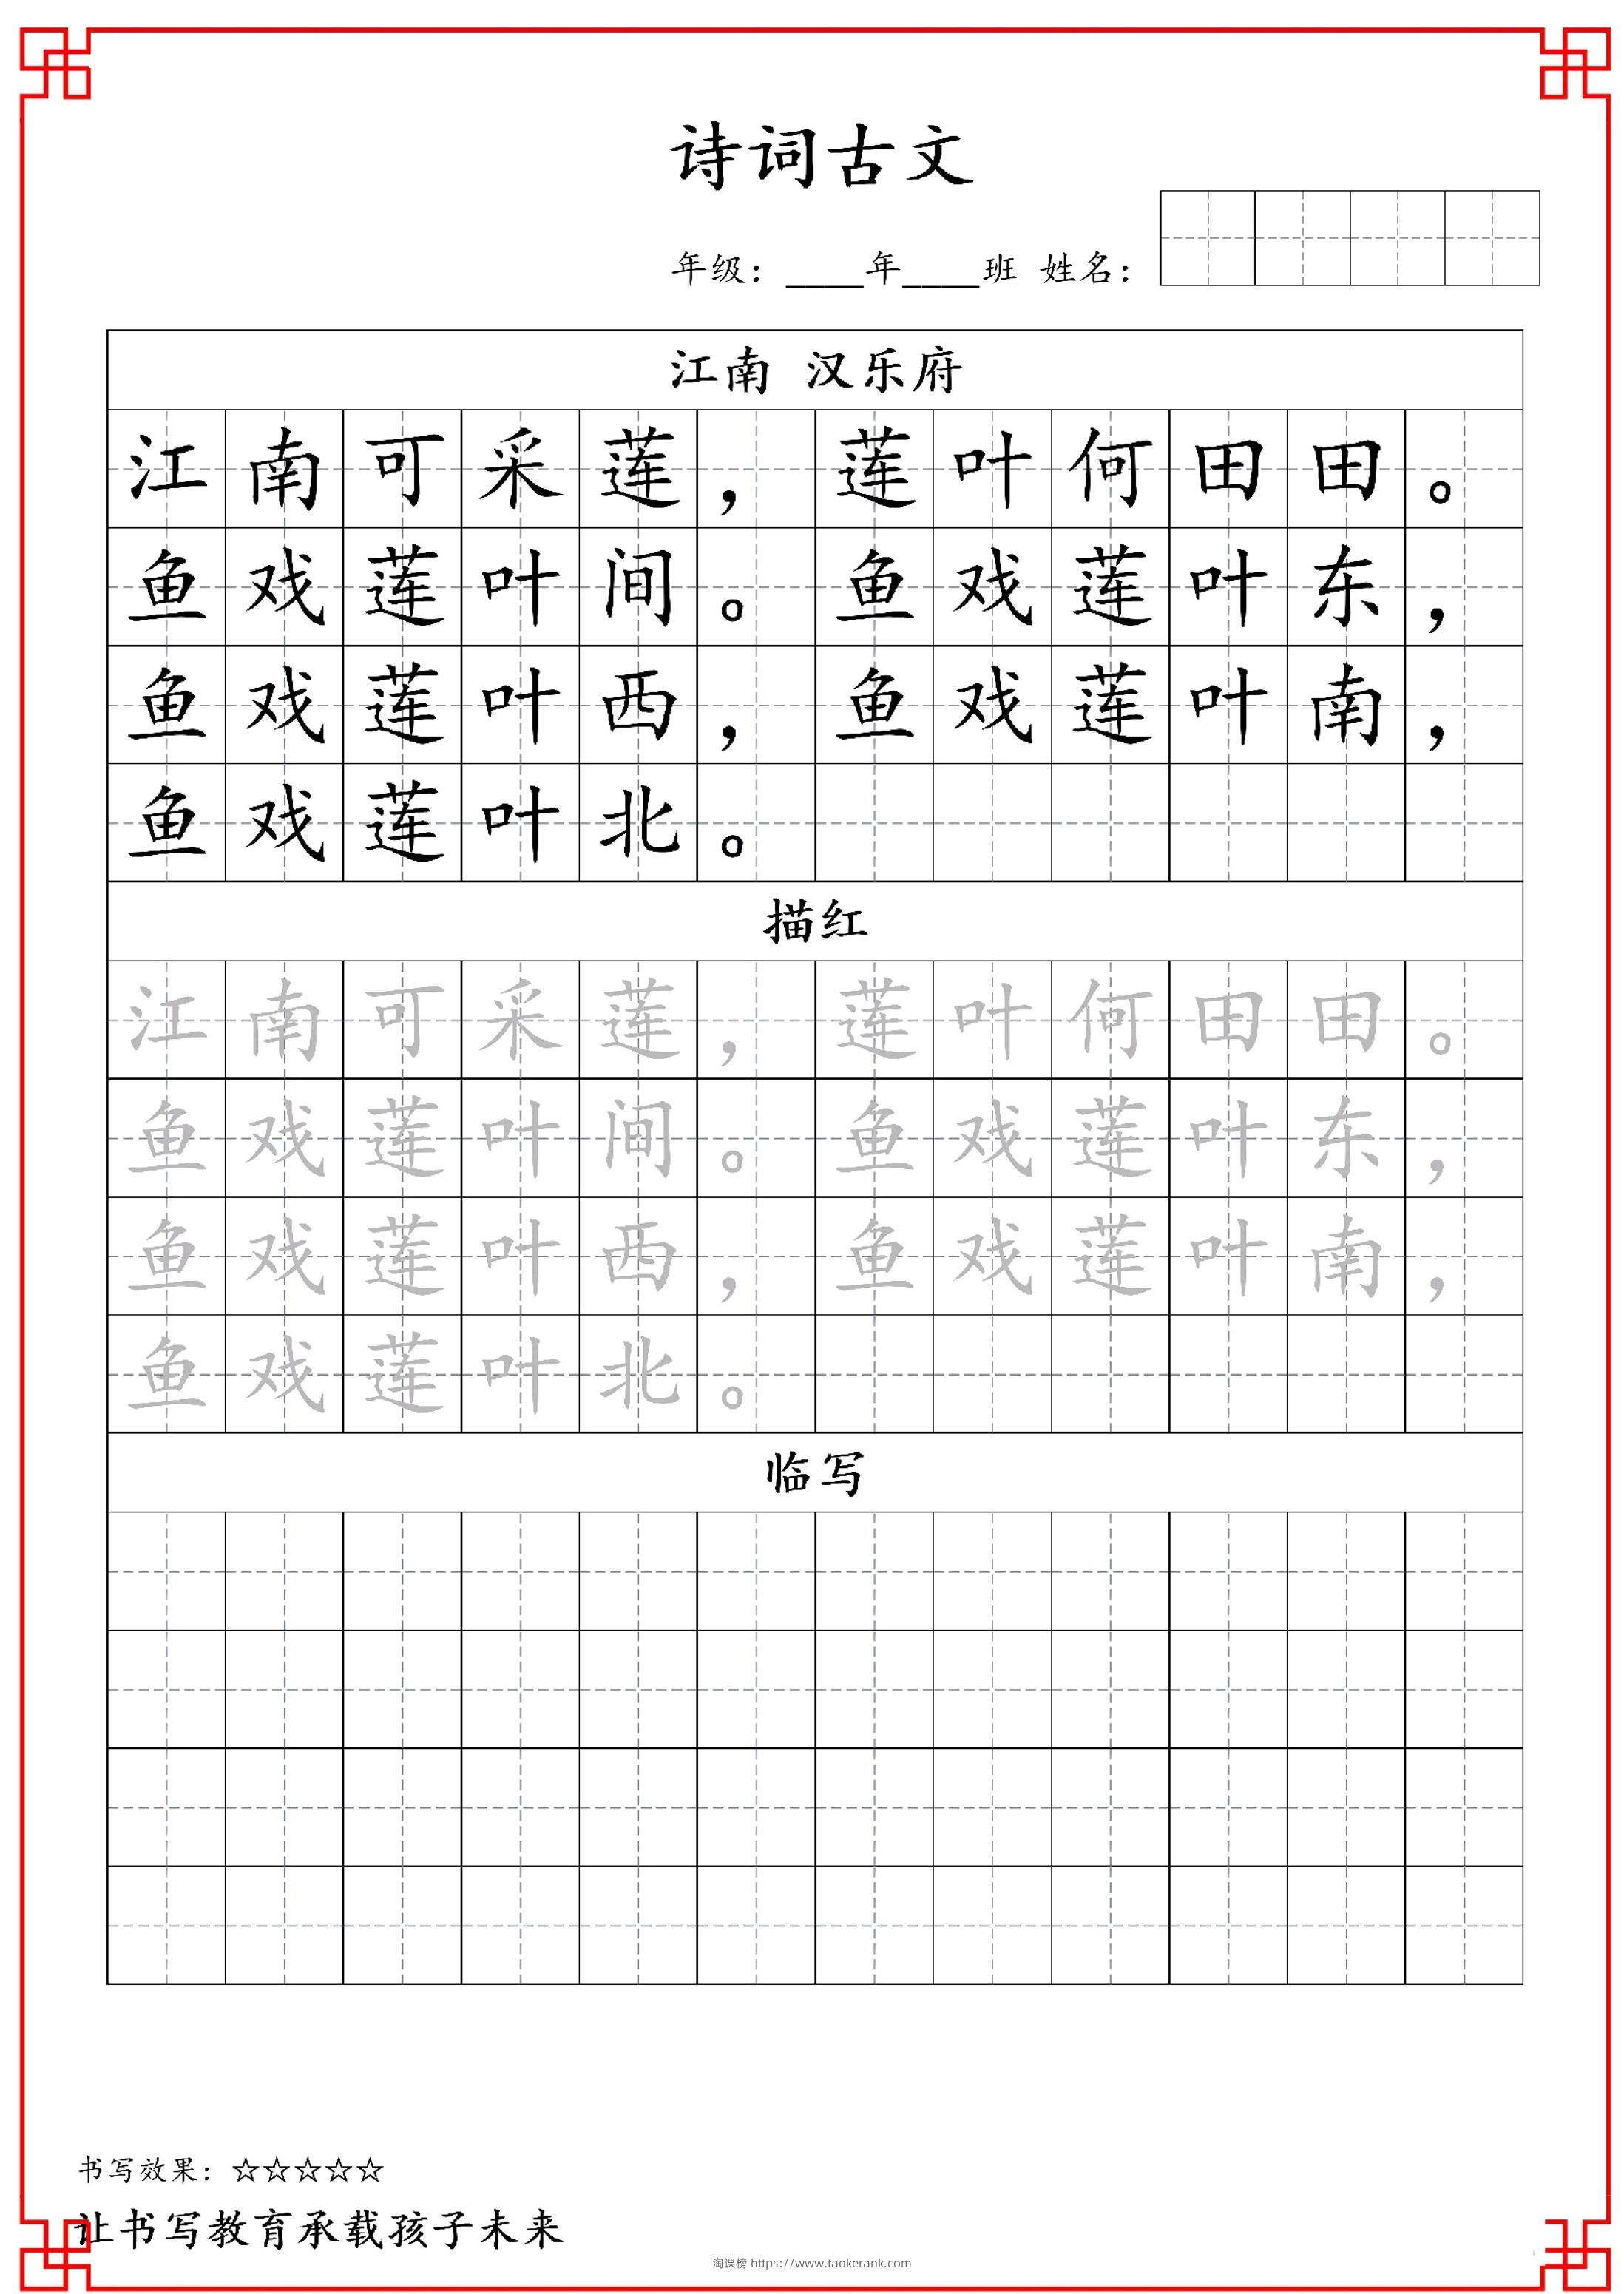 诗词古文
年级：____年____班 姓名：
江南 汉乐府
江南可采莲，莲叶何田田。
鱼戏莲叶间。鱼戏莲叶东，
鱼戏莲叶西，鱼戏莲叶南，
鱼戏莲叶北。
描红
江南可采莲，莲叶何田田。
鱼戏莲叶间。鱼戏莲叶东，
鱼戏莲叶西，鱼戏莲叶南，
鱼戏莲叶北。
临写
书写效果：☆☆☆☆☆
让书写教育承载孩子未来
淘课榜 https://www.taokerank.com